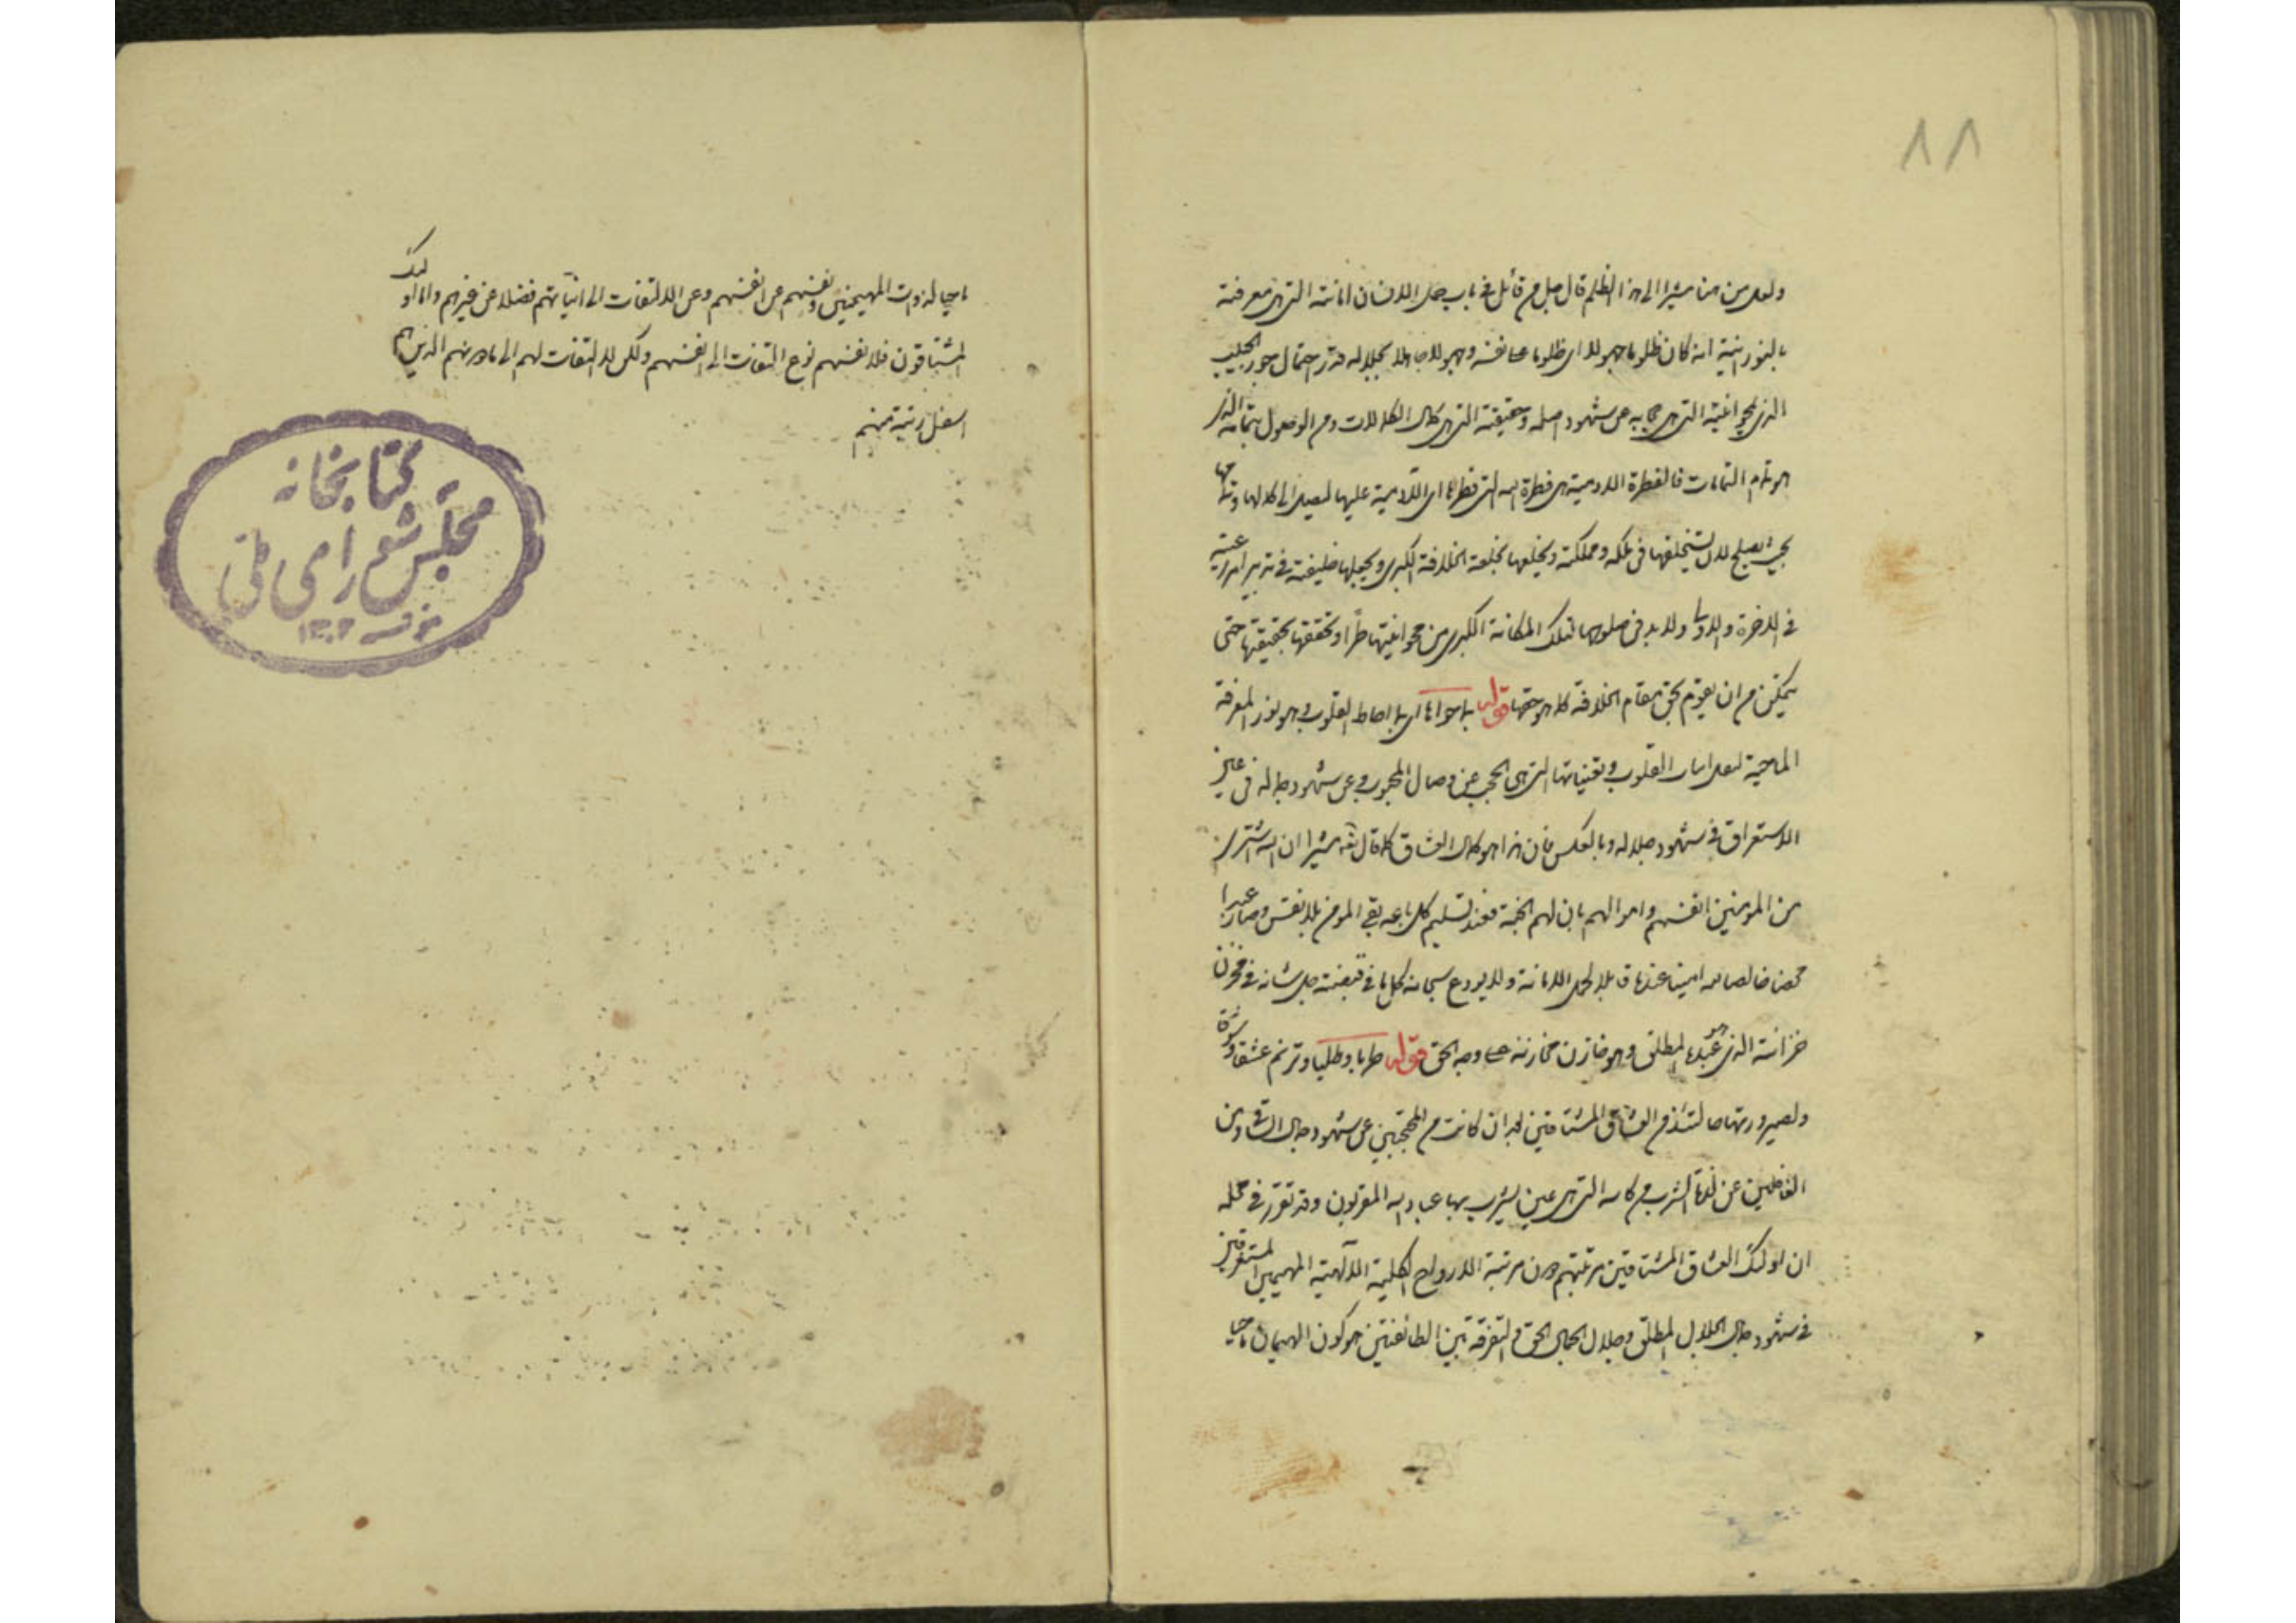 ۸۸
ولعل من هنا مشيرا الى هذا الظلم قال جل من قائل في باب حمل الانسان امانته التي هي معرفته
بالنورانية انه كان ظلوما جهولا اى ظلوما على نفسه وجهولا جاهلا بجلاله قدر احتمال جور الحبيب
الذي يمحو انيته التي هي حجابه عن شهود اصله وحقيقته التي هي كمال الكمالات ومن الوصول بتمامه الذي
هو تمام التمامات فالفطرة الادمية هي فطرة الله التي فطرها اى الادمية عليها ليصل الى كمالها وتمامها
بحيث يصلح لان يستخلفها في ملكه ومملكته ويخلعها بخلعة الخلافة الكبرى ويجعلها خليفته في تدبير امر رعيته
في الاخرة والاولى ولا بد في صلوحها لتلك المكانة الكبرى من محو انيتها طرا وتحققها بحقيقتها حتى
يتمكن من ان يقوم بحق مقام الخلافة كما هو حقها قوله يا حواها اى يا احاط القلوب هو نور المعرفة
الماحية لعل انيات القلوب وتعيناتها التي هي الحجب عن وصال المحبوب وعن شهود جماله في عين
الاستغراق في شهود جلاله وبالعكس فان هذا هو كمال العشاق كما قال تع مشيرا ان الله اشترى
من المومنين انفسهم واموالهم بان لهم الجنة فعند تسليم كل ما عنده بقي المومن بلا نفس وصار عبدا
محضا خالصا لله امينا عنده قابلا لحمل الامانة ولا يودع سبحانه كل ما في قبضته جل شانه في مخزن
خزانته الذي هو عبده المطلق وهو خازن مخازنه على وجه الحق قوله طربا وطلبا وترنم عشقا وشوقا
ولصيرورتها صالتئذ من العشاق المشتاقين لبعد ان كانت من المحتجبين عن شهود جمال الله تع ومن
الغافلين عن لذة الشرب من كاسه التي هي عين يشرب بها عباد الله المقربون وقد تقرر في محله
ان اولئك العشاق المشتاقين مرتبتهم دون مرتبة الارواح الكلية الالهية المهيمين المستغرقين
في شهود جمال الجلال المطلق وجلال الجمال الحق والتفرقة بين الطائفتين هو كون الهيمان ماحيا
ماحيا لذوات المهيمنين ونفسهم عن انفسهم وعن الالتفات الى انياتهم فضلا عن غيرهم واما اولئك
المشتاقون فلانفسهم نوع التفات الى انفسهم ولكن لا التفات لهم الى مادونهم الذين هم
اسفل رتبة منهم
کتابخانه
مجلس شورای ملی
۱۳۰۲